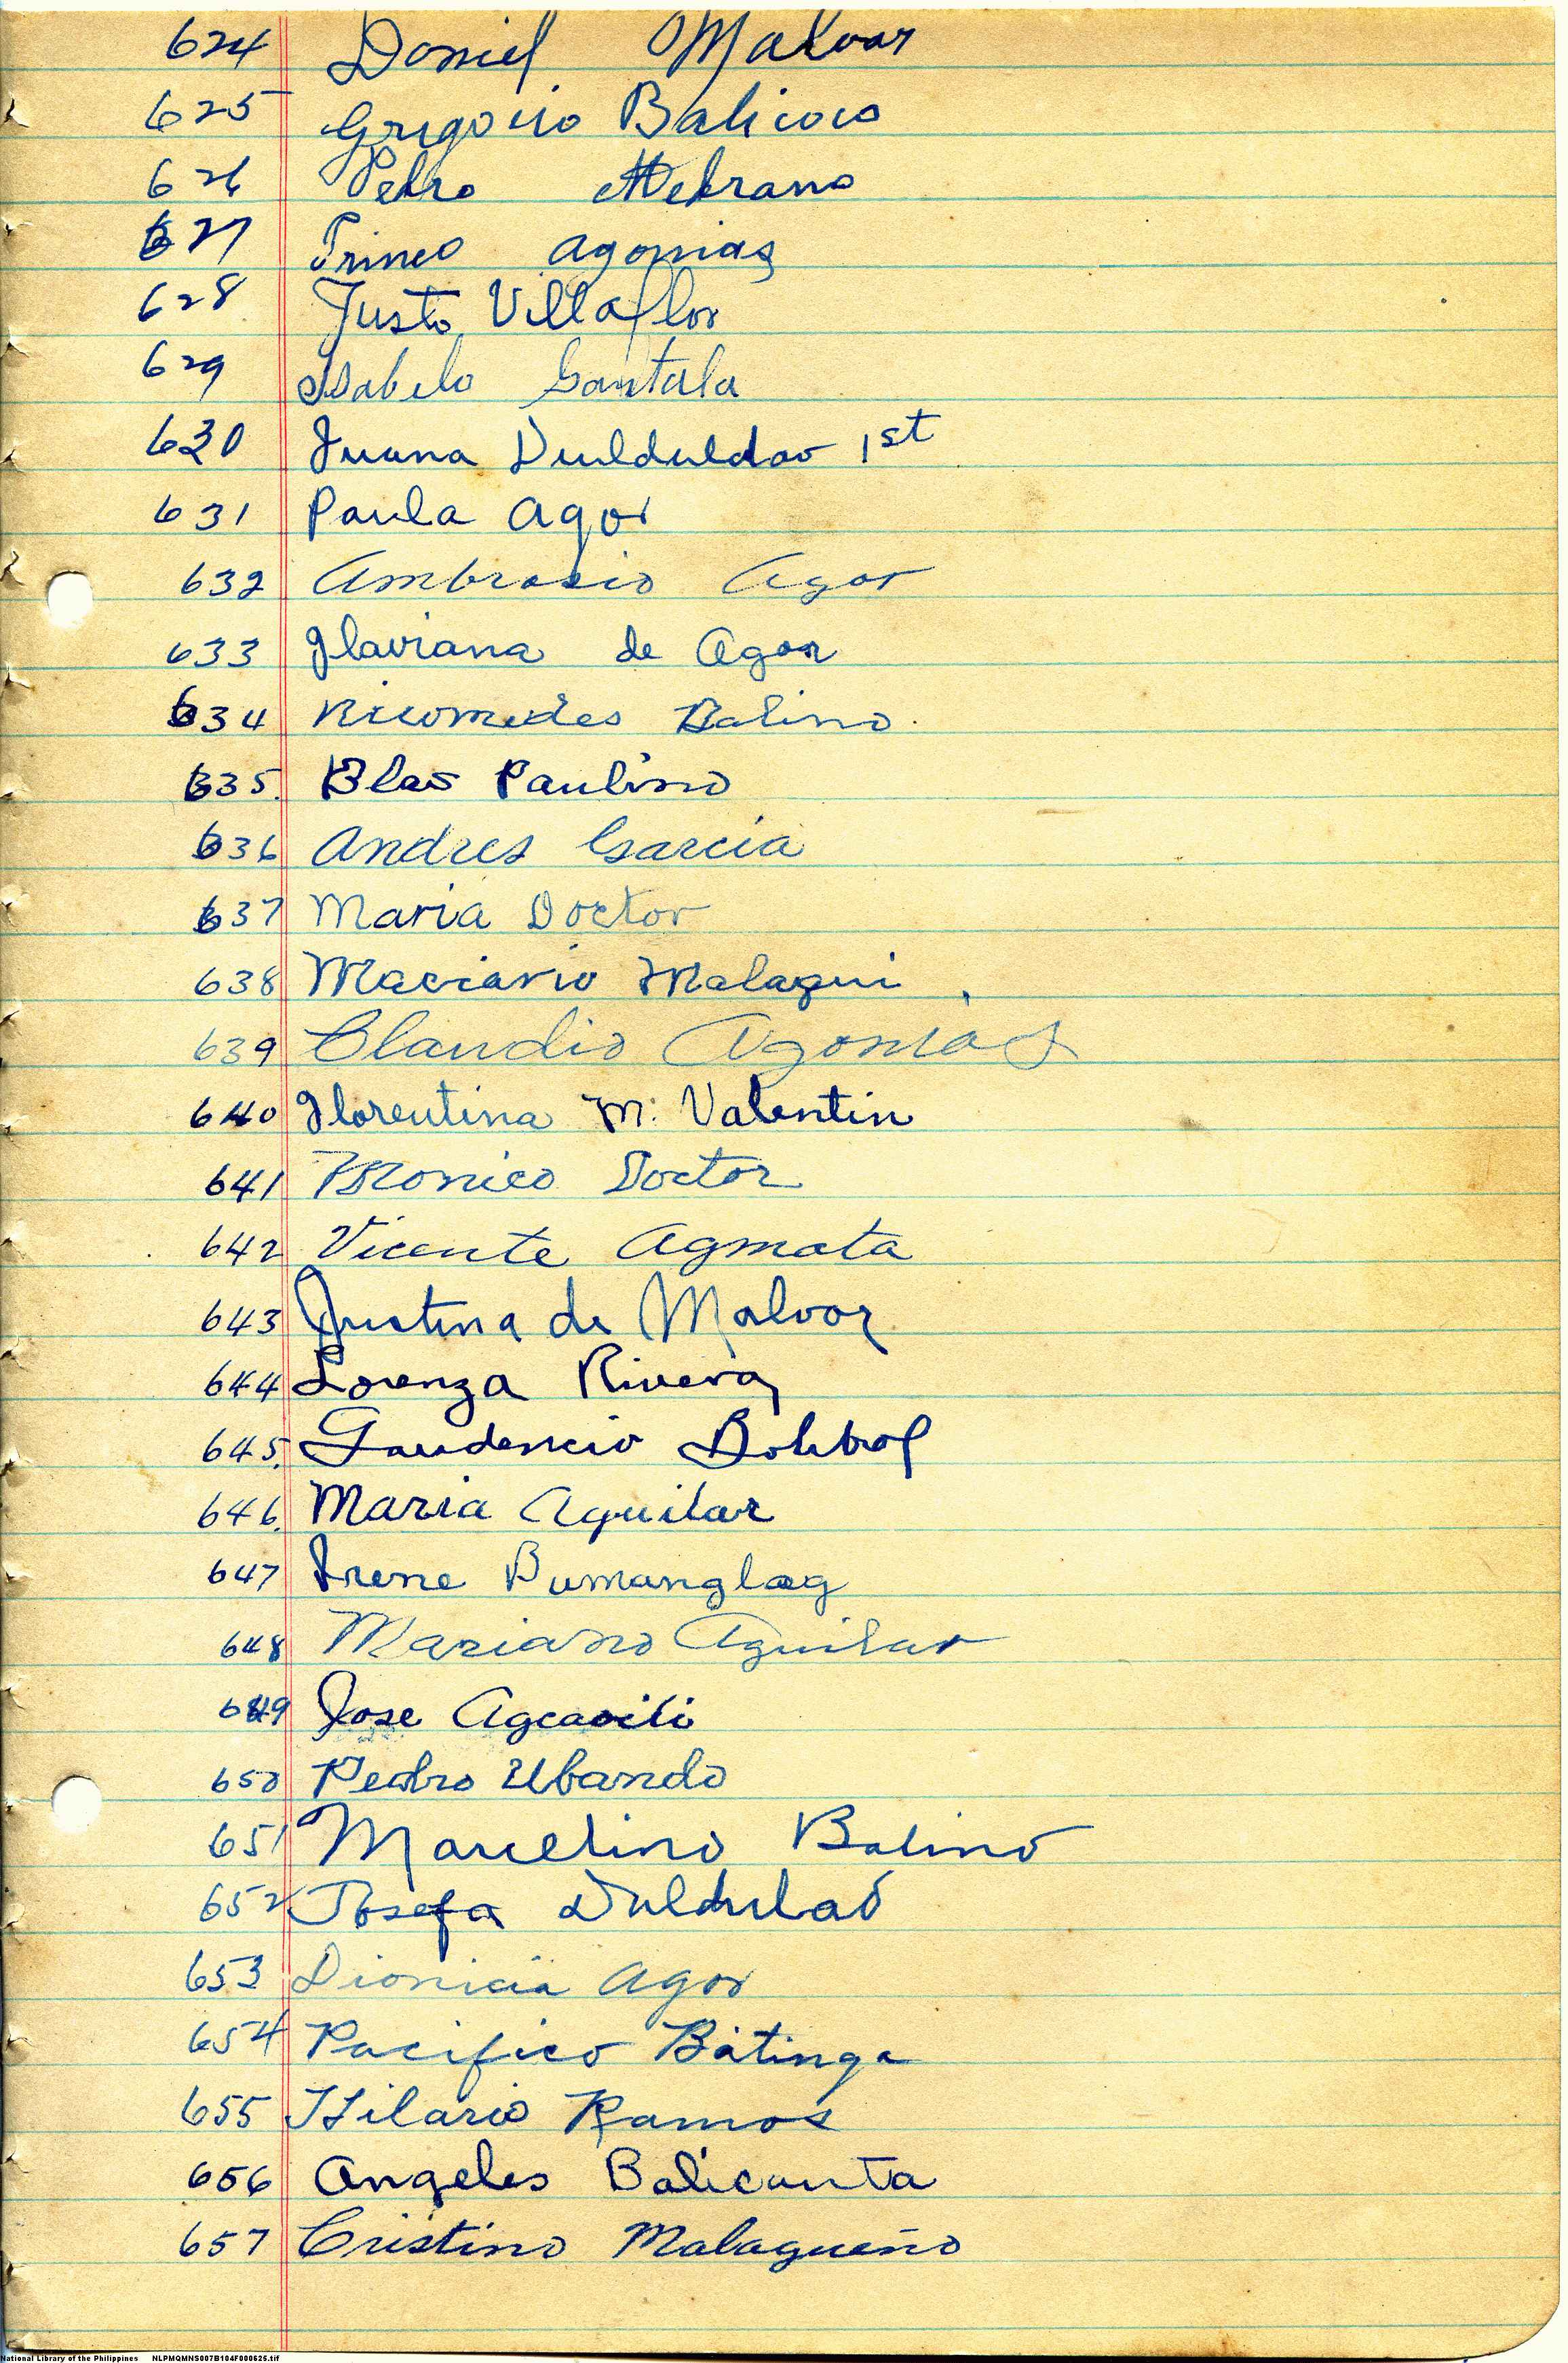 624 Daniel Malvar
625 Grigorio Balicocо
626 Pedro Medrano
627 Primo Agonias
628 Justo Villaflor
629 Isabelo Gantala
630 Juana Dulduldao 1st
631 Paula Agor
632 Ambrosio Agor
633 Flaviana de Agor
634 Nicomedes Balino
635. Blas Paulino
636 Andres Garcia
637 Maria Doctor
638 Macario Malagui
639 Claudio Agonias
640 Florentina M. Valentin
641 Monico Doctor
642 Vicente Agmata
643 Justina de Malvar
644 Lorenza Rivera
645. Gaudencio
646. Maria Aguilar
647 Irene Bumanglag
648 Mariano Aguilar
649 Jose Agcaoili
650 Pedro Ubando
651 Marcelino Balino
652 Josefa Duldulao
653 Dionicia Agor
654 Pacifico Batinga
655 Hilario Ramos
656 Angeles Balicanta
657 Cristino Malagueño
National Library of the Philippines NLPMQMNS007B104F000625.tif